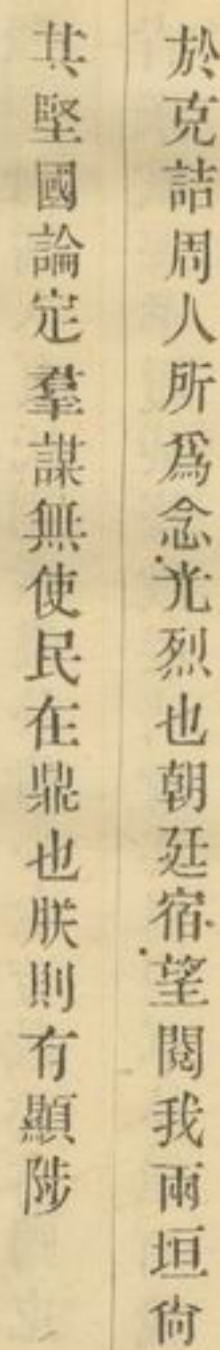 於克詰周人所爲念光烈也朝廷宿望閱我兩垣尙
其堅國論定羣謀無使民在鼎也朕則有顯陟